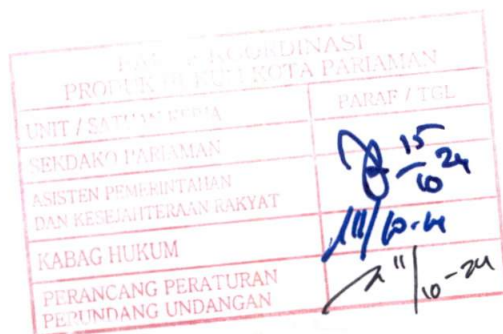 KOORDINASI
PRODUK HUKUM KOTA PARIAMAN
UNIT / SATUAN KERJA
PARAF / TGL
SEKDAKO PARIAMAN
ASISTEN PEMERINTAHAN
DAN KESEJAHTERAAN RAKYAT
15/10 24
KABAG HUKUM
11/10-24
PERANCANG PERATURAN
PERUNDANG UNDANGAN
11/10-24